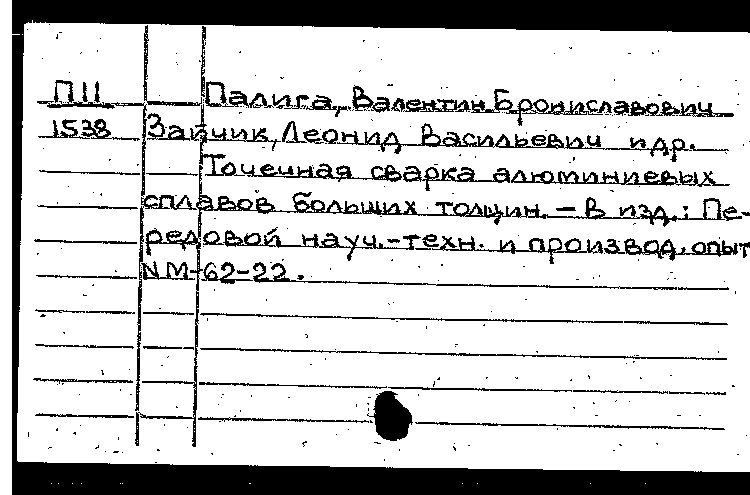 П11
1538
Палига, Валентин Брониславович
Зайчик, Леонид Васильевич и др.
Точечная сварка алюминиевых
сплавов больших толщин. – В изд.: Пе-
редовой науч.-техн. и производ. опыт
NМ-62-22.